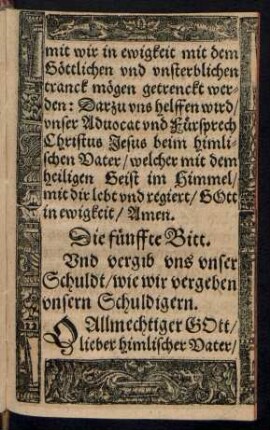 mit wir in ewigkeit mit dem
Göttlichen vnd vnsterblichen
tranck mögen getrenckt wer-
den: Darzu vns helffen wird/
vnser Aduocat vnd Fürsprech
Christus Jesus beim himli-
schen Vater/ welcher mit dem
heiligen Geist im Himmel/
mit dir lebt vnd regiert/ GOtt
in ewigkeit/ Amen.
Die fünffte Bitt.
Vnd vergib vns vnser
Schuldt/ wie wir vergeben
vnsern Schuldigern.
O Allmechtiger GOtt/
lieber himlischer Vater/